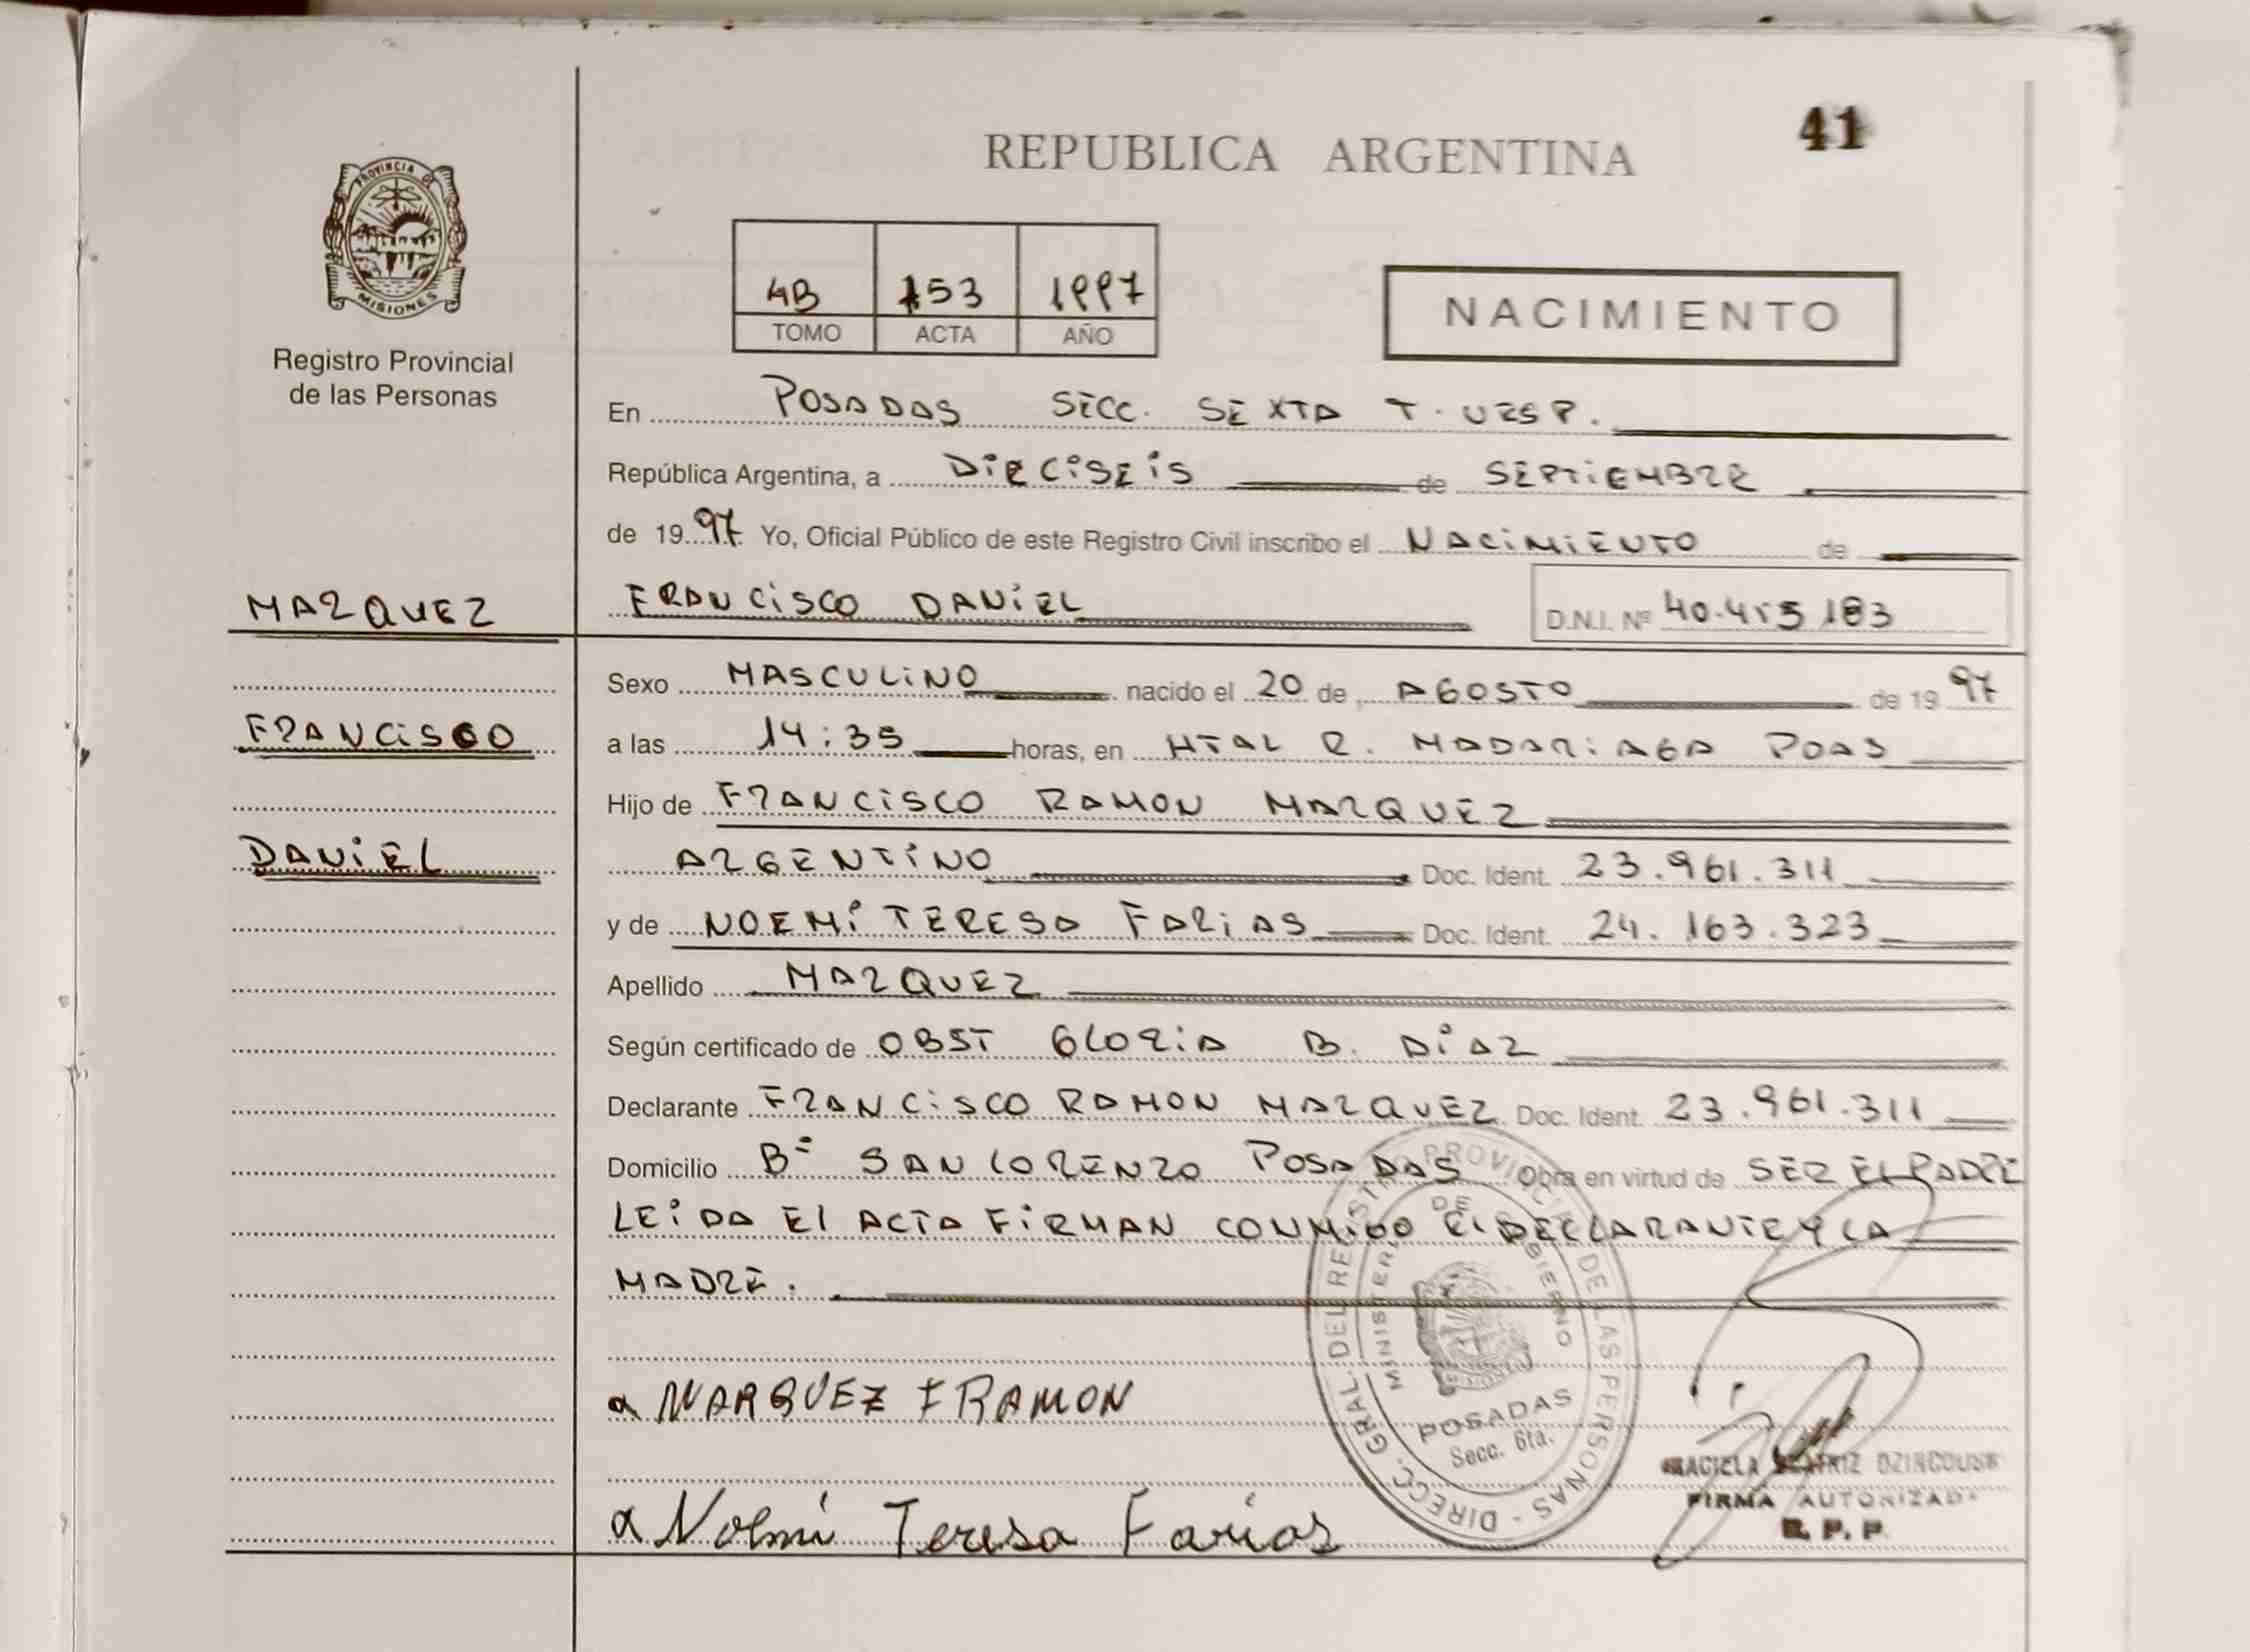 41
REPUBLICA ARGENTINA
PROVINCIA DE
MISIONES
Registro Provincial
de las Personas
4B 153 1997
TOMO ACTA AÑO
NACIMIENTO
En POSADAS SECC. SEXTA T. VESP.
República Argentina, a DIECISEIS de SEPTIEMBRE
de 1997 Yo, Oficial Público de este Registro Civil inscribo el NACIMIENTO de
MARQUEZ FRANCISCO DANIEL D.N.I. Nº 40.415.183
Sexo MASCULINO nacido el 20 de AGOSTO de 1997
FRANCISCO a las 14:35 horas, en HTAL R. MADARIAGA POAS
Hijo de FRANCISCO RAMON MARQUEZ
DANIEL ARGENTINO Doc. Ident. 23.961.311
y de NOEMI TERESA FARIAS Doc. Ident. 24.163.323
Apellido MARQUEZ
Según certificado de OBST GLORIA B. DIAZ
Declarante FRANCISCO RAMON MARQUEZ Doc. Ident. 23.961.311
Domicilio Bº SAN LORENZO POSADAS Obra en virtud de SER EL PADRE
LEIDA El ACTA FIRMAN CONMIGO El DECLARANTE Y LA
MADRE.
MARQUEZ F RAMON
Noemí Teresa Farias
DIRECC. GRAL. DEL REGISTRO PROVINCIAL DE LAS PERSONAS -
MINISTERIO DE GOBIERNO
POSADAS
Secc. 6ta.
GRACIELA BEATRIZ
FIRMA AUTORIZADA
R. P. P.